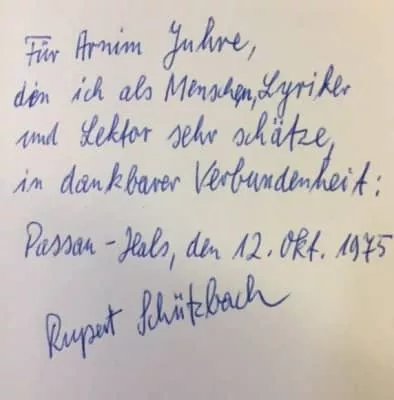 Für Arnim Juhre,
den ich als Menschen, Lyriker
und Lektor sehr schätze,
in dankbarer Verbundenheit:
Passau-Hals, den 12. Okt. 1975
Rupert Schützbach